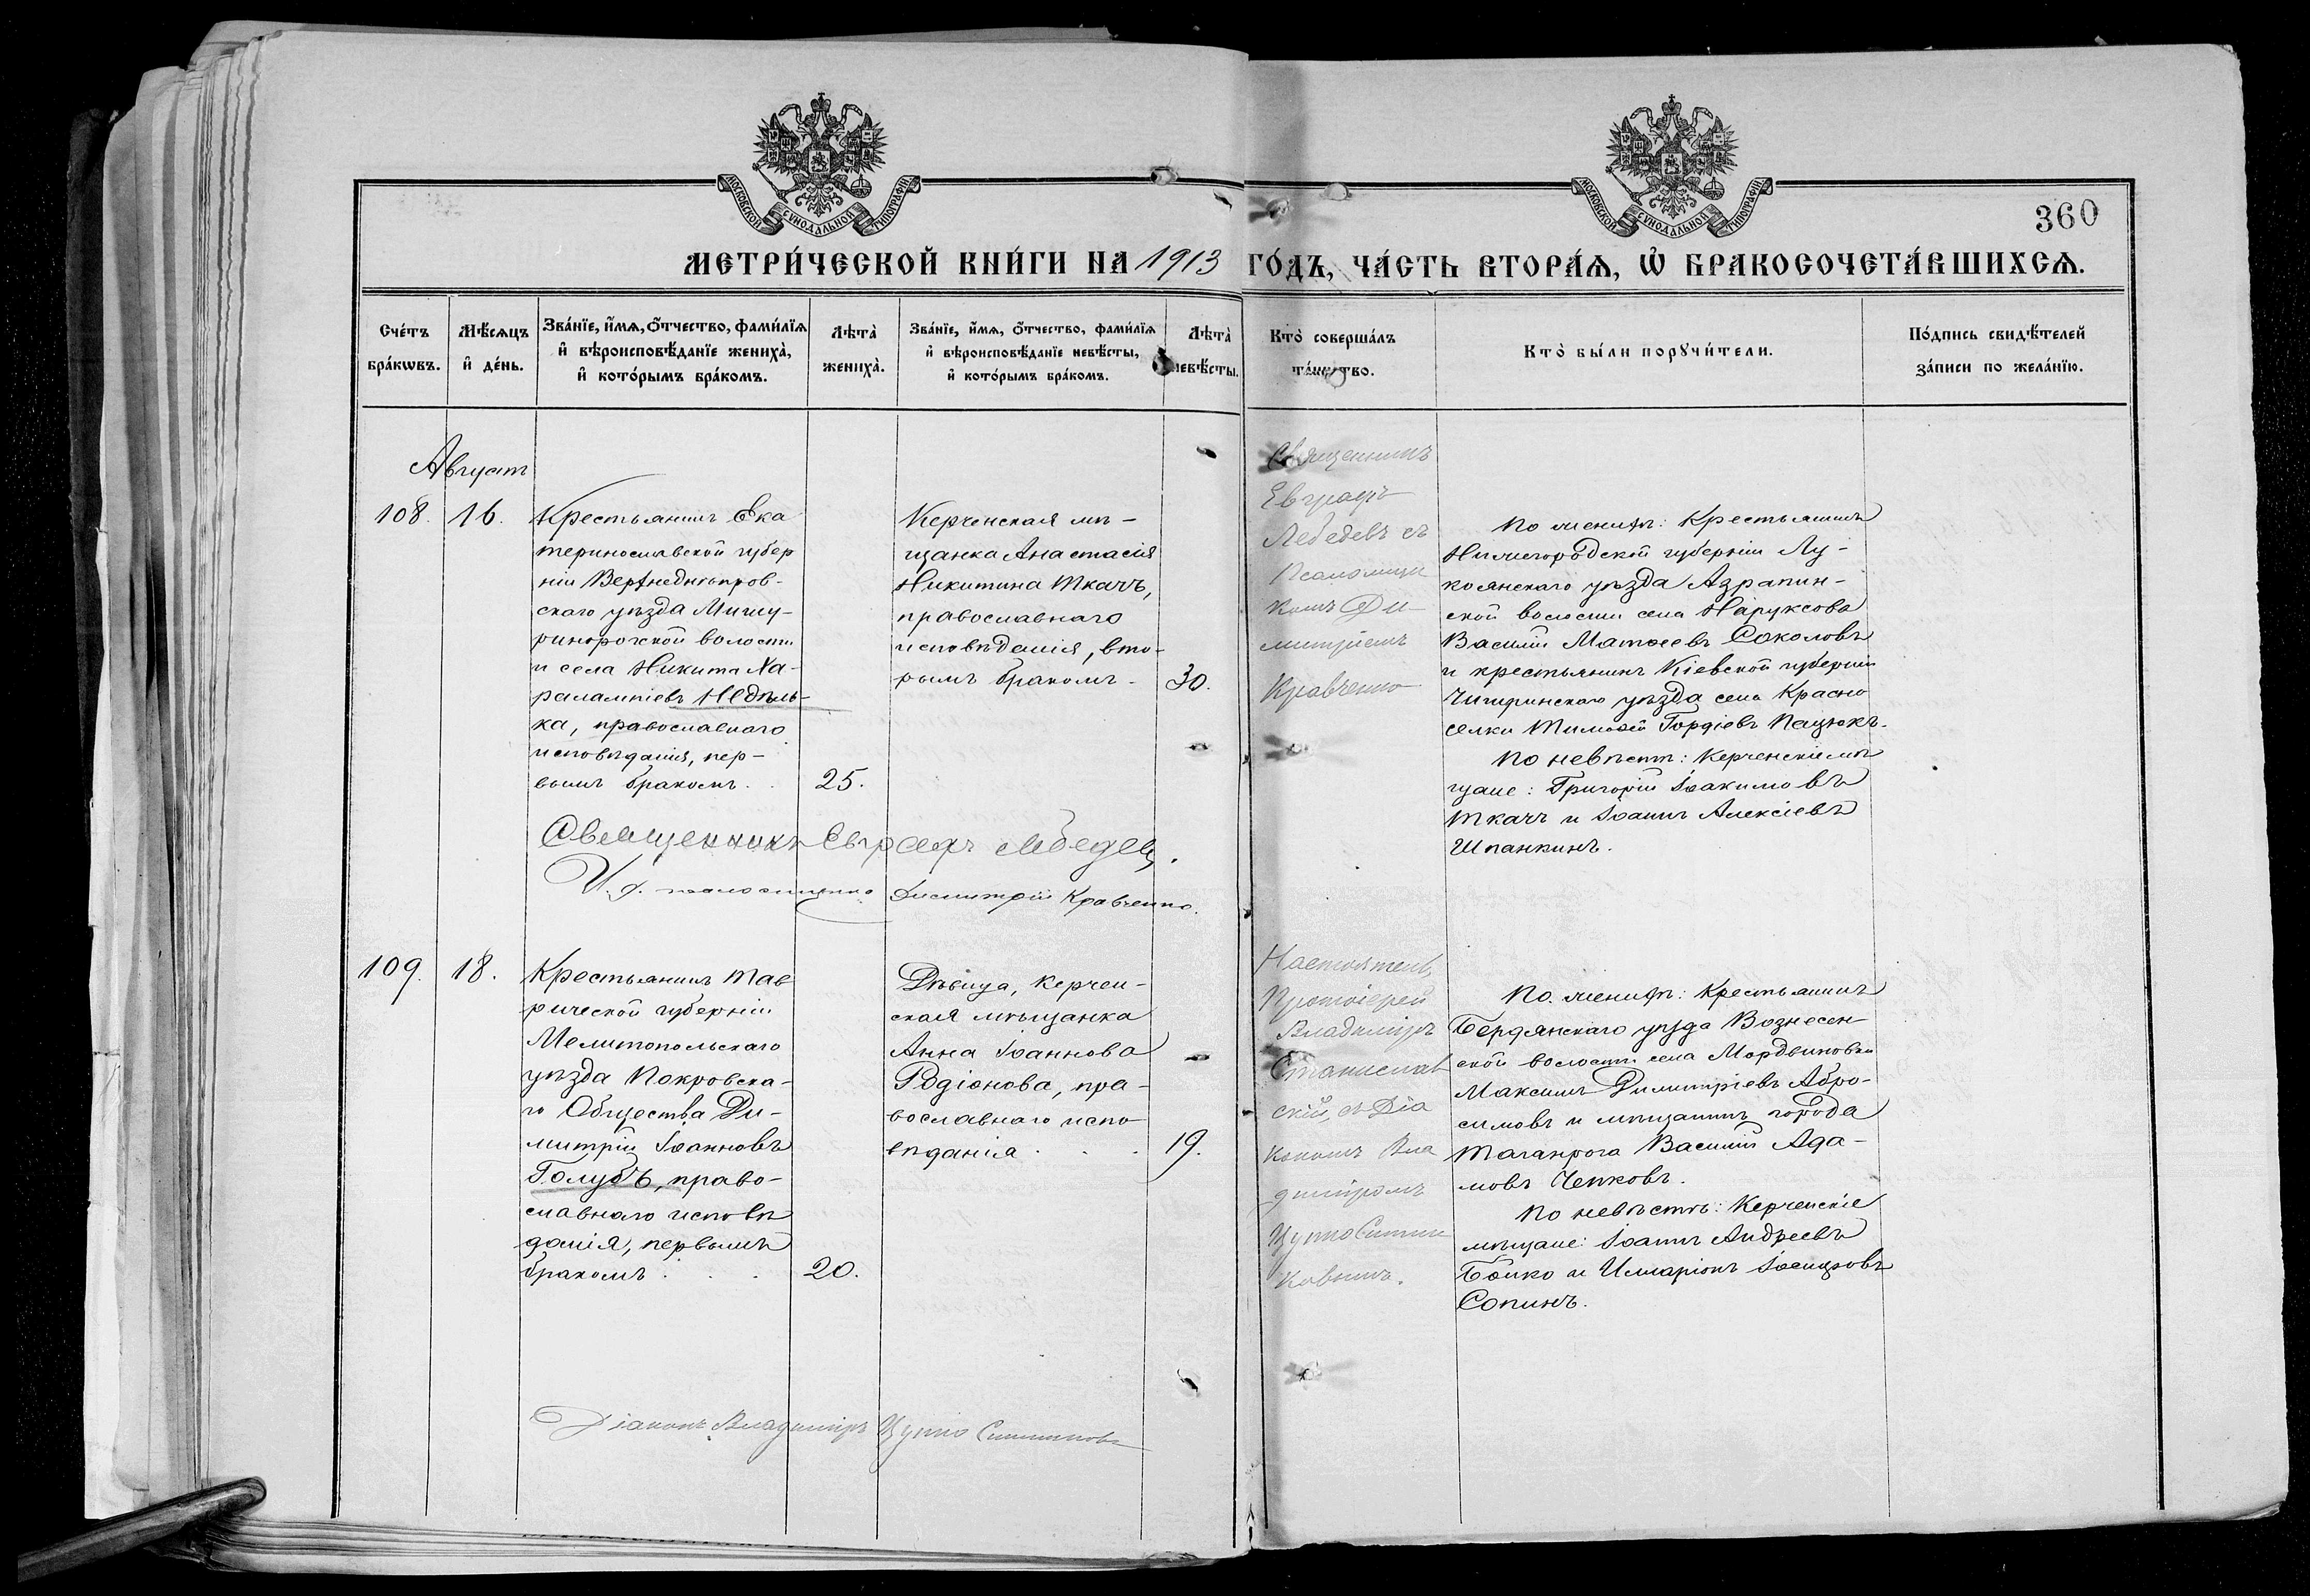 МОСКОВСКОЙ СУНОДАЛЬНОЙ ТИПОГРАФІИ
МОСКОВСКОЙ СУНОДАЛЬНОЙ ТИПОГРАФІИ
360
МЕТРИ́ЧЕСКОЙ КНИ́ГИ НА 1913 ГО́ДЪ, ЧА́СТЬ ВТОРА́Ѧ, Ѡ҆ БРАКОСОЧЕТА́ВШИХСѦ.
Сче́тъ
бра́кѡвъ.
Мѣ́сѧцъ
и҆ де́нь.
Зва́нїе, и҆́мѧ, ѻ҆́тчество, фами́лїѧ
и҆ вѣроисповѣ́данїе жениха̀,
и҆ кото́рымъ бра́комъ.
Лѣта̀
жениха̀.
Зва́нїе, и҆́мѧ, ѻ҆́тчество, фами́лїѧ
и҆ вѣроисповѣ́данїе невѣ́сты,
и҆ кото́рымъ бра́комъ.
Лѣта̀
невѣ́сты.
Кто̀ соверша́лъ
та́инство.
Кто̀ бы́ли порꙋчи́тели.
По́дпись свидѣ́телей
за́писи по жела́нїю.
Августъ
108.
16.
Крестьянинъ Ека
теринославской губер
ніи Верхнеднѣпров-
скаго уѣзда Мишу-
ринорогской волости
и села Никита Ха-
ралампіевъ Недѣль-
ка, православнаго
исповѣданія, пер-
вымъ бракомъ . .
25.
Керченская мѣ-
щанка Анастасія
Никитина Ткачъ,
православнаго
исповѣданія, вто-
рымъ бракомъ -
30.
Священникъ
Евграфъ
Лебедевъ съ
Псаломщи
комъ Ди
митріемъ
Кравченко
По женихѣ: Крестьянинъ
Нижегородской губерніи Лу-
кояновскаго уѣзда Азрапин-
ской волости села Наруксова
Василій Матѳеевъ Соколовъ
и крестьянинъ Кіевской губерніи
Чигиринскаго уѣзда села Красно
селки Тимоѳей Гордіевъ Пацюкъ.
По невѣстѣ: Керченскіе мѣ
щане: Григорій Іоакимовъ
Ткачъ и Іоаннъ Алексіевъ
Шпанкинъ.
Священникъ Евграфъ Лебедевъ.
И. д. псаломщика Димитрій Кравченко.
109.
18.
Крестьянинъ Тав
рической губерніи
Мелитопольскаго
уѣзда Покровска-
го Общества Ди-
митрій Іоанновъ
Голубъ, право-
славнаго исповѣ
данія, первымъ
бракомъ . . .
20.
Дѣвица, Керчен-
ская мѣщанка
Анна Іоаннова
Родіонова, пра-
вославнаго испо
вѣданія . . .
19.
Настоятель,
Протоіерей
Владиміръ
Станислав
скій, съ Діа
кономъ Вла
диміромъ
По женихѣ: Крестьянинъ
Бердянскаго уѣзда Вознесен-
ской волости села Мордвиновки
Максимъ Димитріевъ Абро-
симовъ и мѣщанинъ города
Таганрога Василій Ада-
мовъ Чепковъ.
По невѣстѣ: Керченскіе
мѣщане: Іоаннъ Андреевъ
Бойко и Илларіонъ Іосифовъ
Сопинъ.
Діаконъ Владиміръ